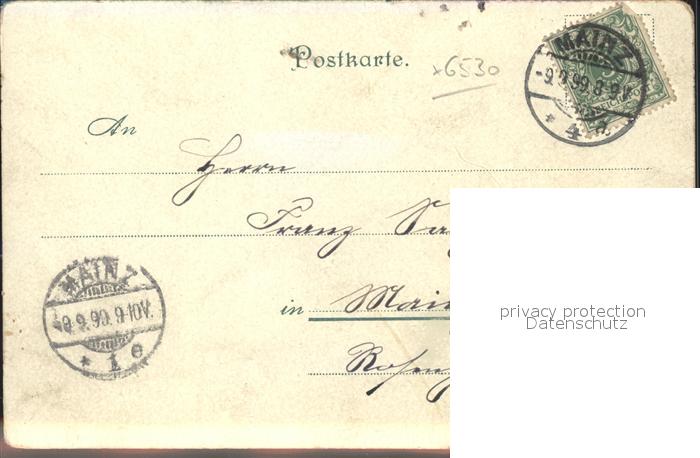 Postkarte.
x6530
MAINZ
-9.9.99.8-9V.
* 4 a
An
Herrn
Franz
MAINZ
9.99.9-10V.
* 1 e
in
privacy protection
Datenschutz